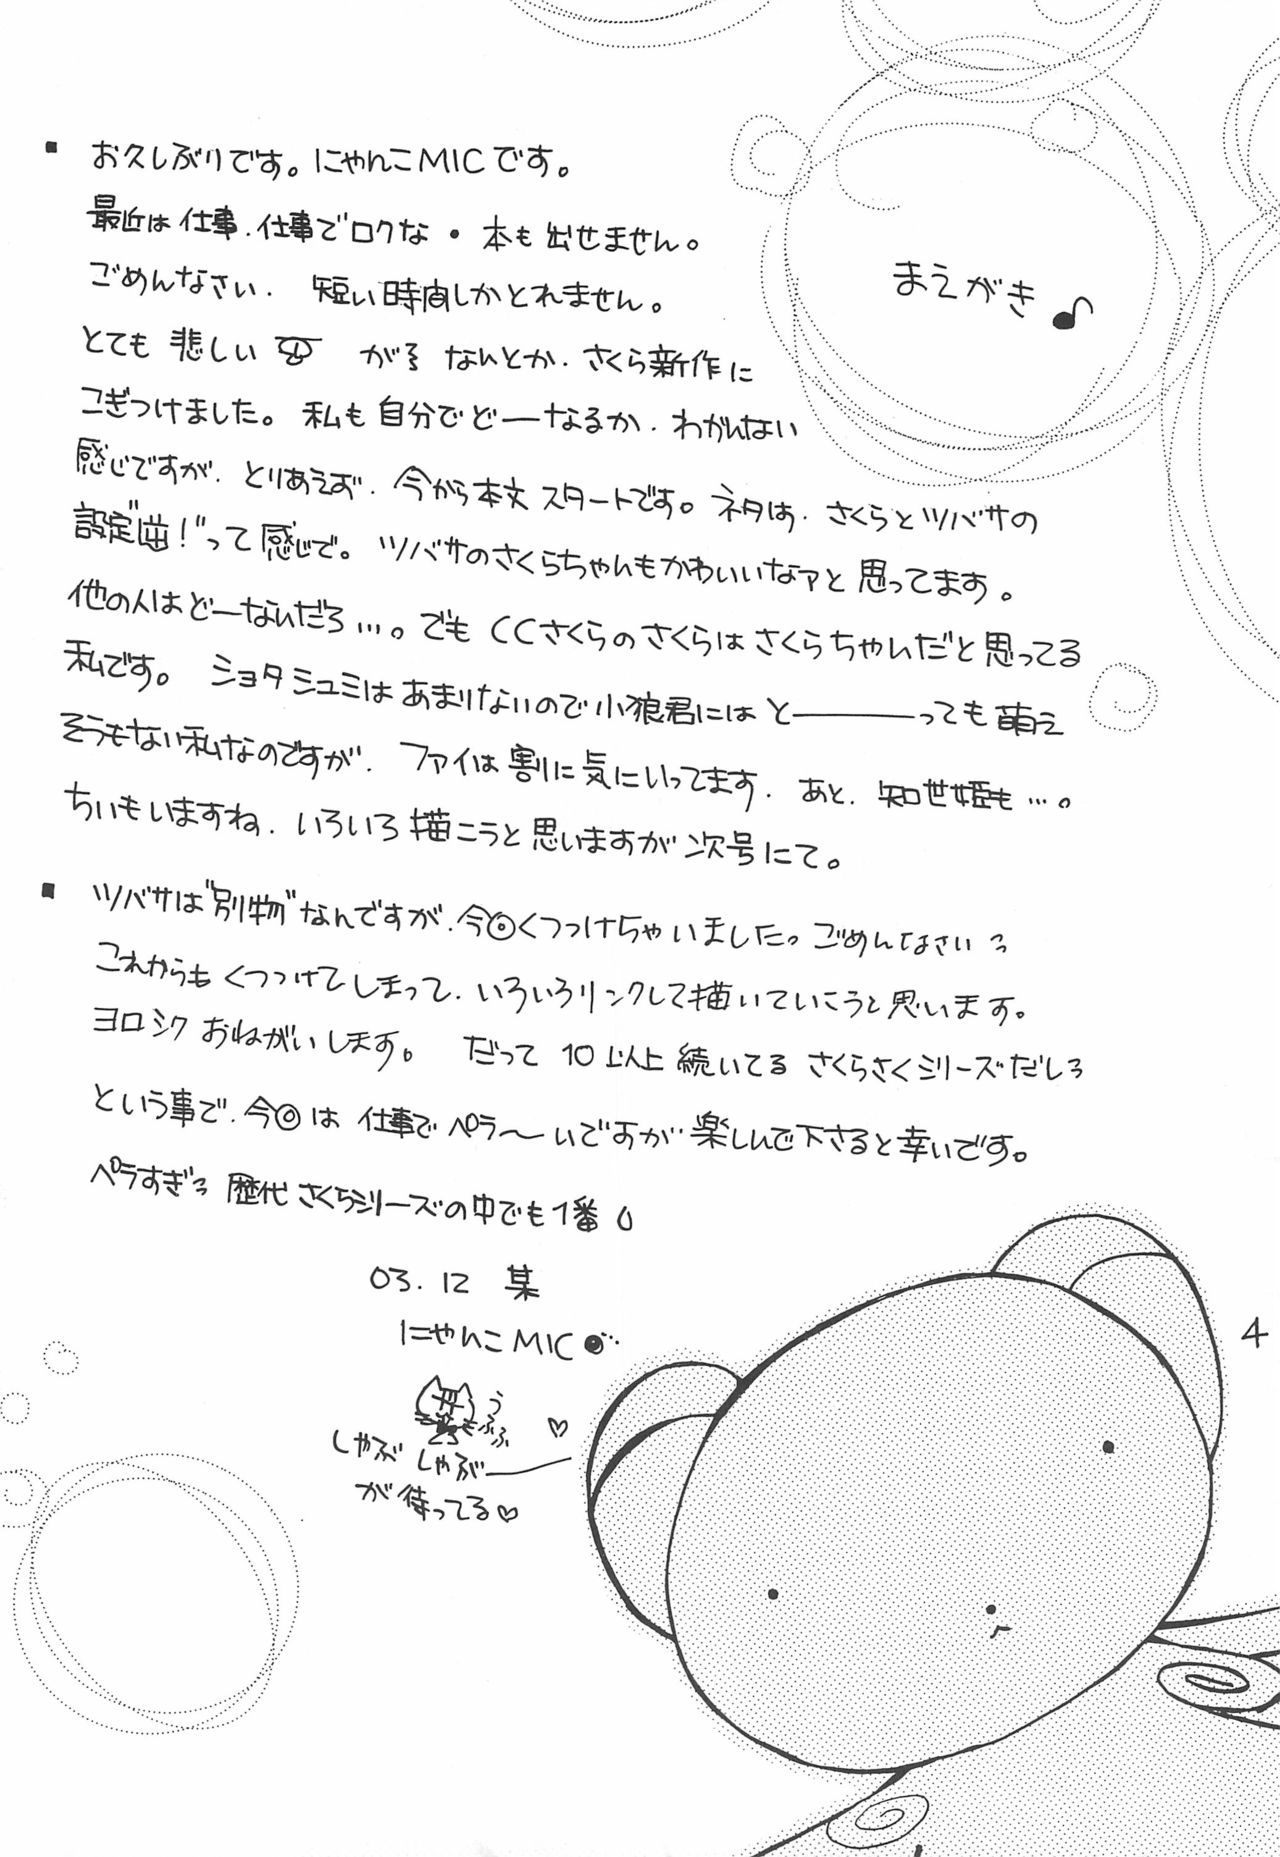 まえがき♪
■ お久しぶりです。にゃんこMICです。
最近は仕事.仕事でロクな・本も出せません。
ごめんなさい. 短い時間しかとれません。
とても悲しい が なんとか.さくら新作に
こぎつけました。私も自分でどーなるか.わかんない
感じですが.とりあえず.今から本文スタートです。ネタは.さくらとツバサの
設定"逆!"って感じで。ツバサのさくらちゃんもかわいいなァと思ってます。
他の人はどーなんだろ…。でもCCさくらのさくらはさくらちゃんだと思ってる
私です。 ショタシュミはあまりないので小狼君にはと———っても萌え
そうもない私なのですが. ファイは割に気にいってます. あと.知世姫も…。
ちぃもいますね.いろいろ描こうと思いますが次号にて。
■ ツバサは"別物"なんですが.今回くっつけちゃいました。ごめんなさいっ
これからもくっつけてしまって.いろいろリンクして描いていこうと思います。
ヨロシクおねがいします。 だって10以上続いてるさくらさくシリーズだしっ
という事で.今回は仕事でペラ〜いですが.楽しんで下さると幸いです。
ペラすぎっ 歴代さくらシリーズの中でも1番
03.12 某
にゃんこMIC
うふふ
しゃぶしゃぶ
が待ってる♡
4